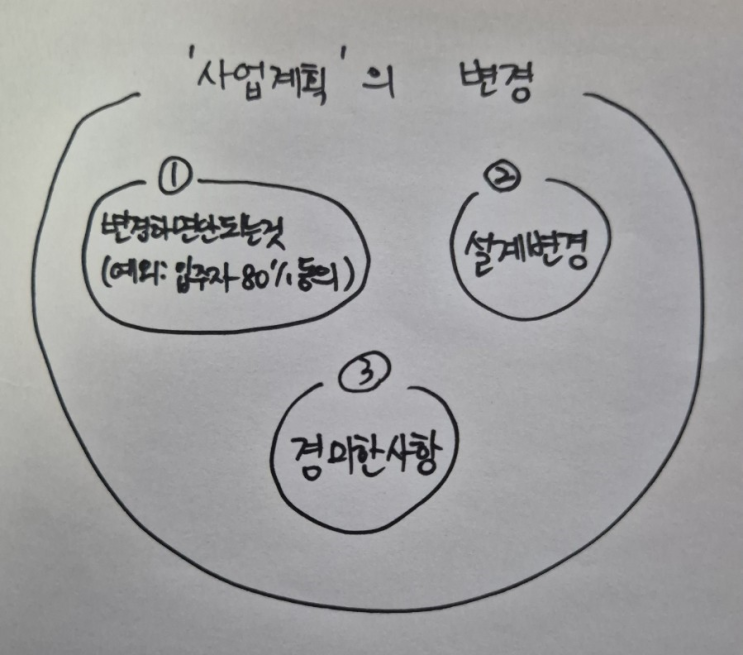 '사업계획'의 변경
①
변경하면안되는것
(예외: 입주자 80% 동의)
②
설계변경
③
경미한사항